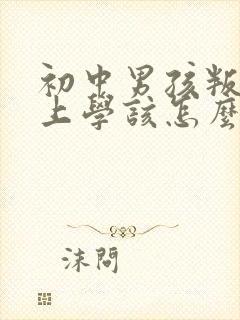 初中男孩叛
上學該怎麼
沫問